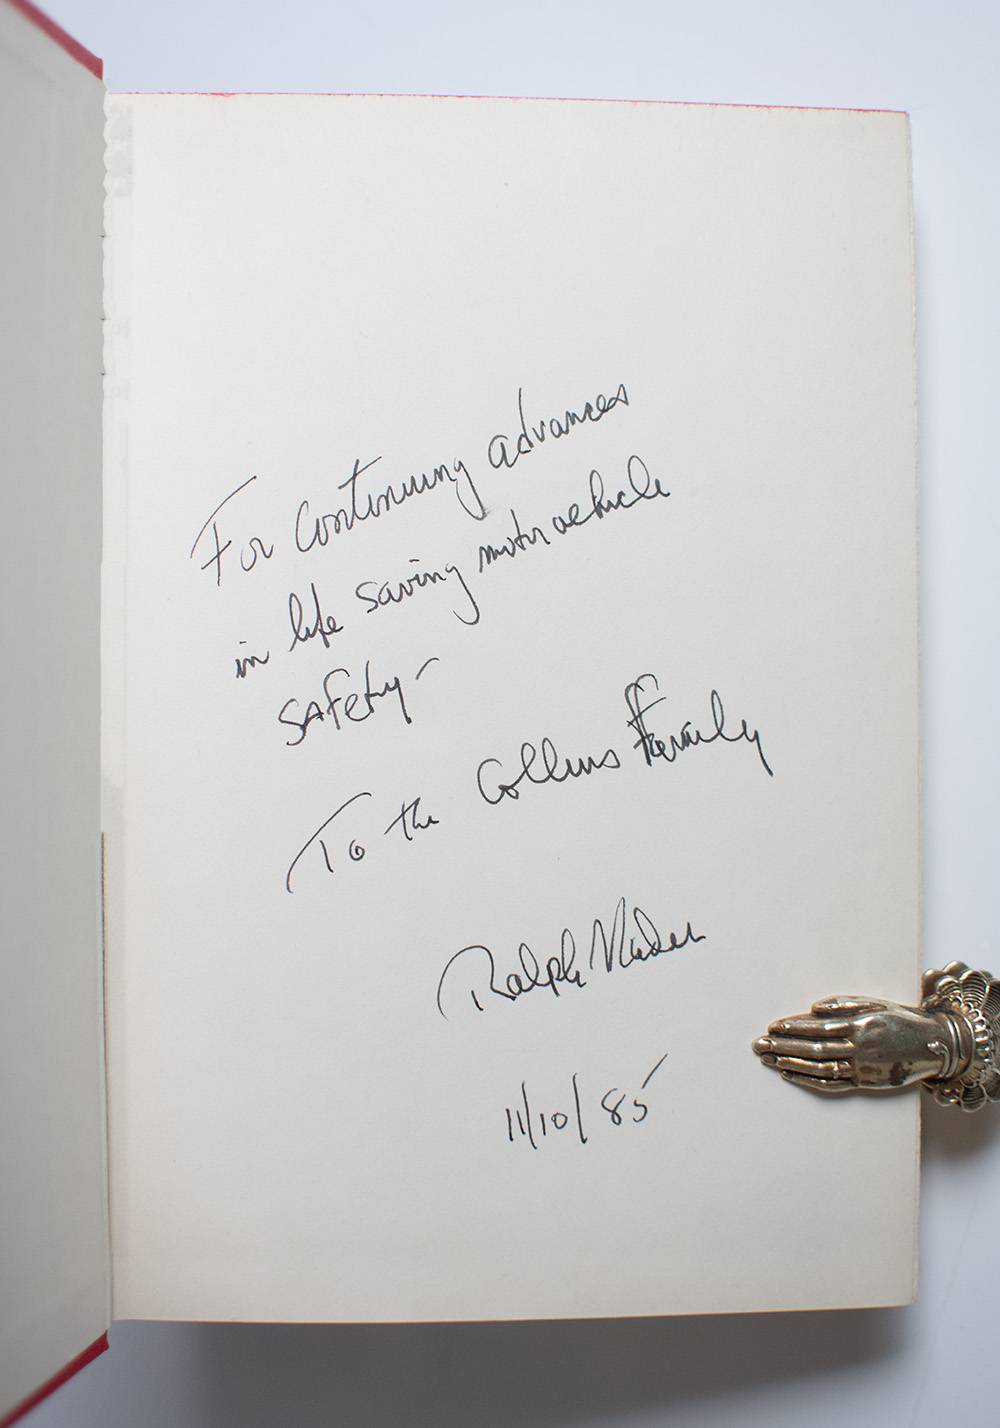 For continuing advances
in life saving motor vehicle
safety-
To the Collins Family
Ralph Nader
11/10/85